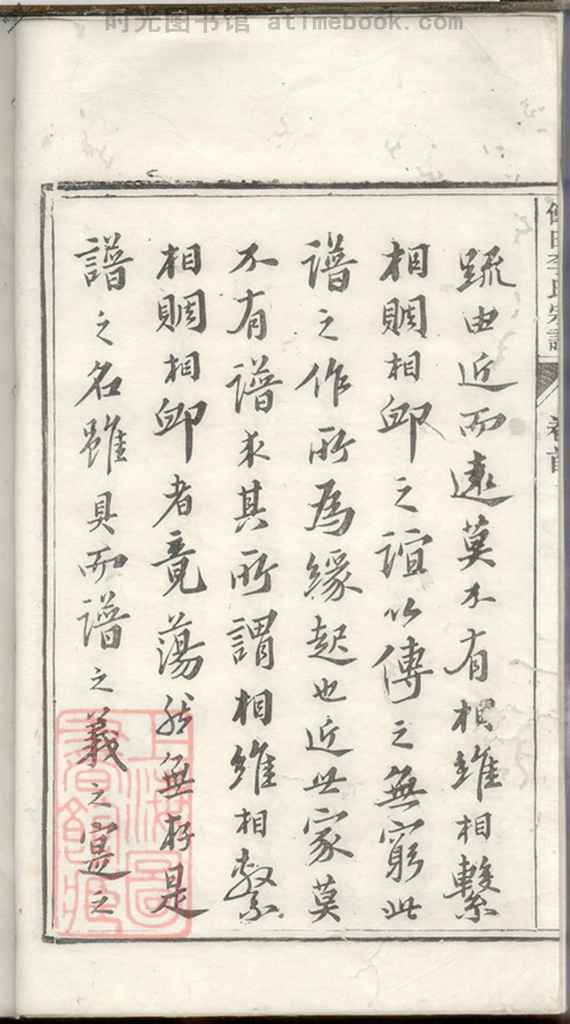 时光图书馆 atimebook.com
李氏宗譜
卷首
疏由近而遠莫不有相維相繫
相賙相卹之誼以傳之無窮此
譜之作所為緣起也近世家莫
不有譜求其所謂相維相繫
相賙相卹者竟蕩然無存是
譜之名雖具而譜之義之寔之
上海圖書館藏